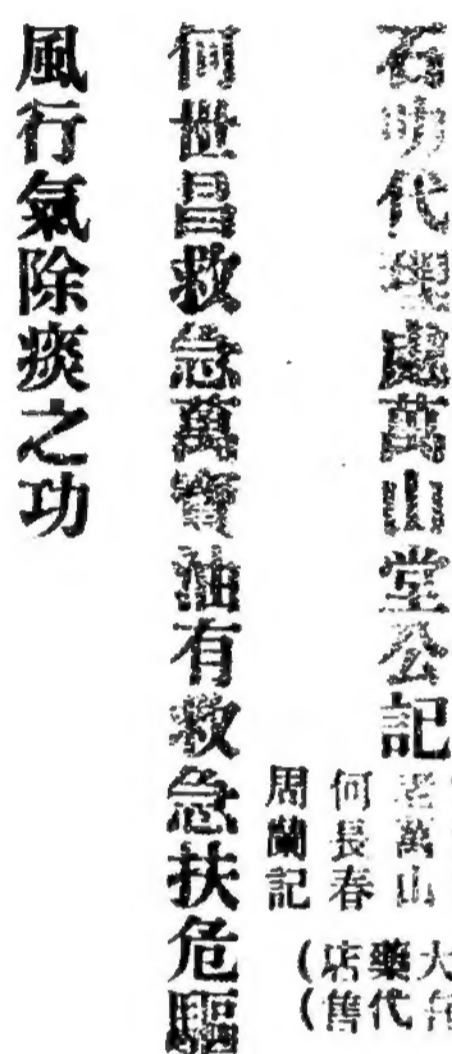 石叻代理處萬山堂公記
老萬山
何長春
周蘭記
大藥店(
各代售(
何世昌救急萬寶油有救急扶危驅
風行氣除痰之功